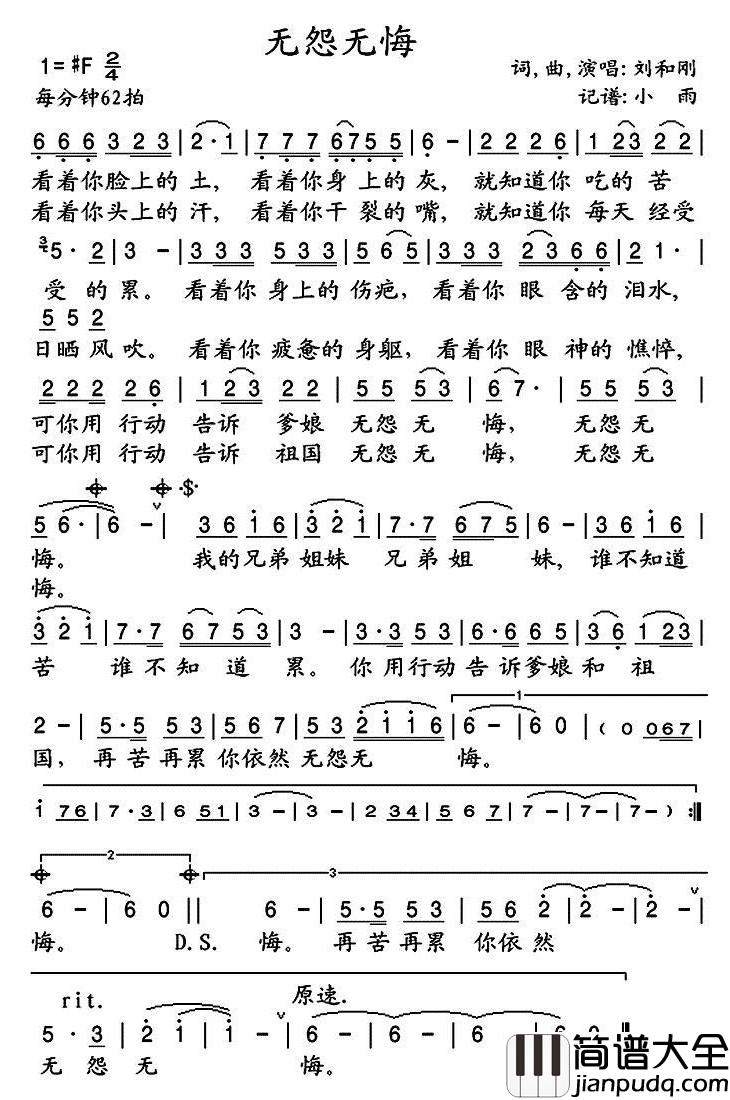 无怨无悔
1=#F 2/4
词,曲,演唱:刘和刚
每分钟62拍
记谱:小 雨
6 6 6 3 2 3 | 2·1 | 7 7 7 6 7 5 5 | 6 - | 2 2 2 6 | 1 2 3 2 2 |
看着你脸上的 土, 看着你身 上的 灰, 就知道你 吃的 苦
看着你头上的 汗, 看着你干 裂的 嘴, 就知道你 每天 经受
3 5· 2 | 3 - | 3 3 3 3 5 3 3 | 5 6 5 | 3 3 3 3 2 3 6 6 | 2 1· |
受 的 累。 看着你 身上的 伤疤, 看着你 眼 含的 泪水,
5 5 2
日晒 风 吹。 看着你 疲惫的 身躯, 看着你 眼 神的 憔悴,
2 2 2 2 6 | 1 2 3 2 2 | 5 5 5 3 | 6 7· | 5 5 5 3 |
可你用 行动 告诉 爹娘 无怨 无 悔, 无怨 无
可你用 行动 告诉 祖国 无怨 无 悔, 无怨 无
5 6· | 6 - | 3 6 i 6 | 3 2 i | 7·7 6 7 5 | 6 - | 3 6 i 6 |
悔。 我的兄弟 姐妹 兄弟 姐 妹, 谁不知道
悔。
3 2 i | 7·7 6 7 5 3 | 3 - | 3·3 5 3 | 6·6 6 5 | 3 6 1 2 3 |
苦 谁 不 知 道 累。 你 用行动 告诉爹娘 和 祖
1
2 - | 5·5 5 3 | 5 6 7 | 5 3 2 i i 6 | 6 - | 6 0 | ( 0 0 6 7 |
国, 再 苦 再累 你依然 无怨无 悔。
i 7 6 | 7·3 | 6 5 1 | 3 - | 3 - | 2 3 4 | 5 6 7 | 7 - | 7 - | 7 - ) :||
2 3
6 - | 6 0 || 6 - | 5·5 5 3 | 5 6 2 | 2 - | 2 - |
悔。 D.S. 悔。 再苦再累 你依 然
rit. 原速.
5· 3 | 2 i | i - | 6 - | 6 - | 6 - | 6 0 ||
无 怨 无 悔。
简谱大全
jianpudq.com